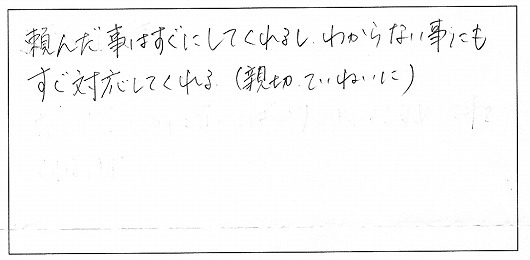 頼んだ事はすぐにしてくれるし、わからない事にも
すぐ対応してくれる（親切、ていねいに）